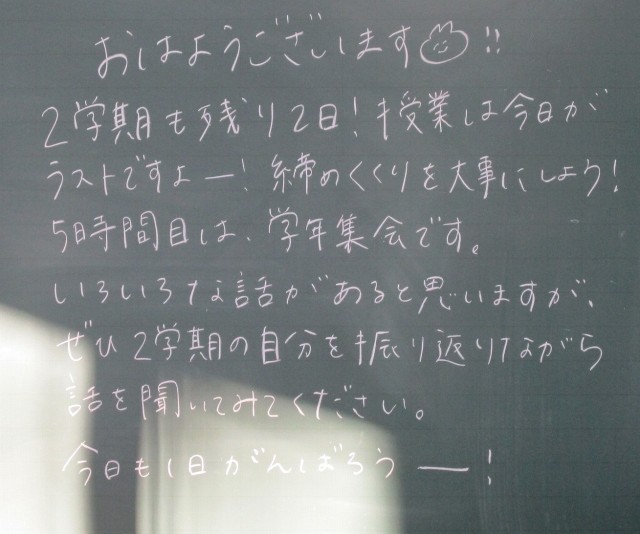 おはようございます!!
2学期も残り2日!授業は今日が
ラストですよー!締めくくりを大事にしよう!
5時間目は、学年集会です。
いろいろな話があると思いますが、
ぜひ2学期の自分を振り返りながら
話を聞いてみてください。
今日も1日がんばろうー!